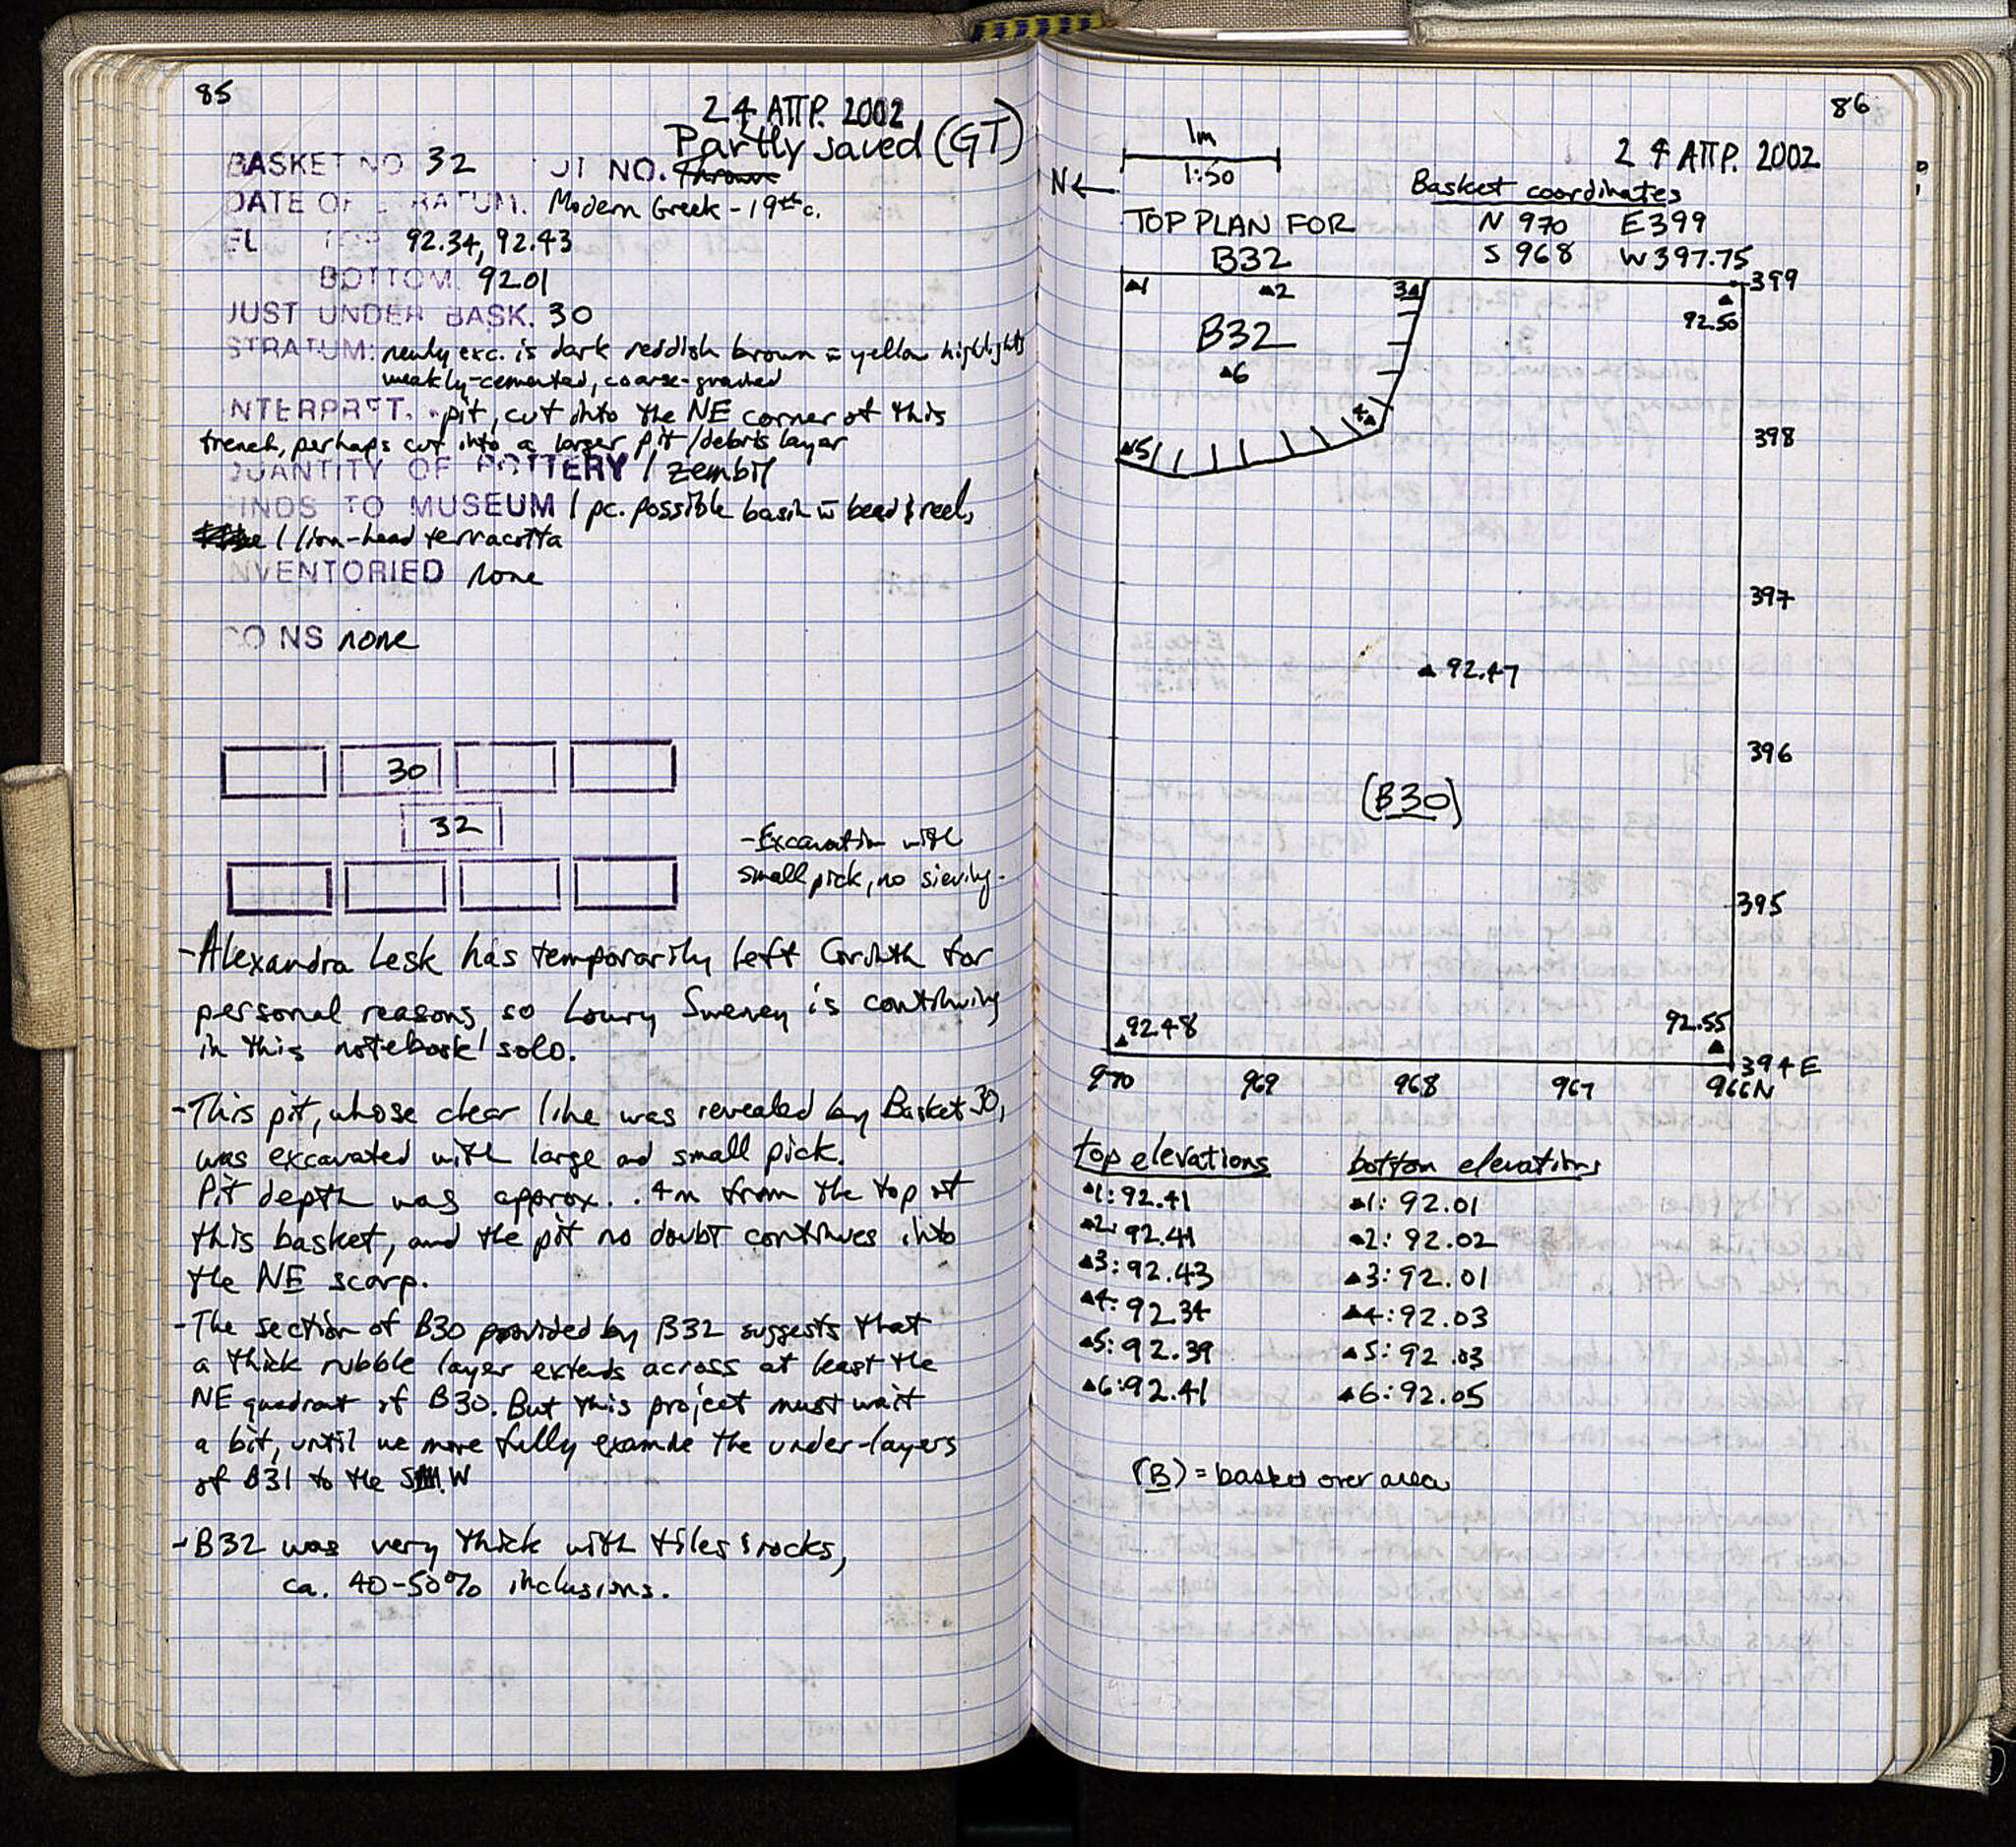 85
24 ΑΠΡ. 2002
Partly saved (GT)
BASKET NO. 32 LOT NO. Thrown
DATE OF STRATUM. Modern Greek - 19th c.
EL TOP 92.34, 92.43
BOTTOM. 92.01
JUST UNDER BASK. 30
STRATUM: newly exc. is dark reddish brown w̄ yellow highlights
weakly-cemented, coarse-grained
INTERPRET. -pit, cut into the NE corner of this
trench, perhaps cut into a larger pit/debris layer
QUANTITY OF POTTERY 1 zembil
FINDS TO MUSEUM 1 pc. possible basin w̄ bead & reel,
1 lion-head terracotta
INVENTORIED none
COINS none
30
32
-Excavation with
small pick, no sieving.
-Alexandra Lesk has temporarily left Corinth for
personal reasons, so Loury Sweney is continuing
in this notebook solo.
-This pit, whose clear line was revealed by Basket 30,
was excavated with large and small pick.
Pit depth was approx. .4m from the top of
this basket, and the pit no doubt continues into
the NE scarp.
-The section of B30 provided by B32 suggests that
a thick rubble layer extends across at least the
NE quadrant of B30. But this project must wait
a bit, until we more fully examine the under-layers
of B31 to the S W
-B32 was very thick with tiles & rocks,
ca. 40-50% inclusions.
86
24 ΑΠΡ. 2002
1m
1:50
N←
Basket coordinates
N 970 E 399
S 968 W 397.75
TOP PLAN FOR
B32
▲1 ▲2 3▲ 399
92.50
B32
▲6
4▲
▲5
398
397
▲ 92.47
396
(B30)
395
92.48 92.55
394 E
970 969 968 967 966N
top elevations
▲1: 92.41
▲2: 92.41
▲3: 92.43
▲4: 92.34
▲5: 92.39
▲6: 92.41
bottom elevations
▲1: 92.01
▲2: 92.02
▲3: 92.01
▲4: 92.03
▲5: 92.03
▲6: 92.05
(B) = basket over area